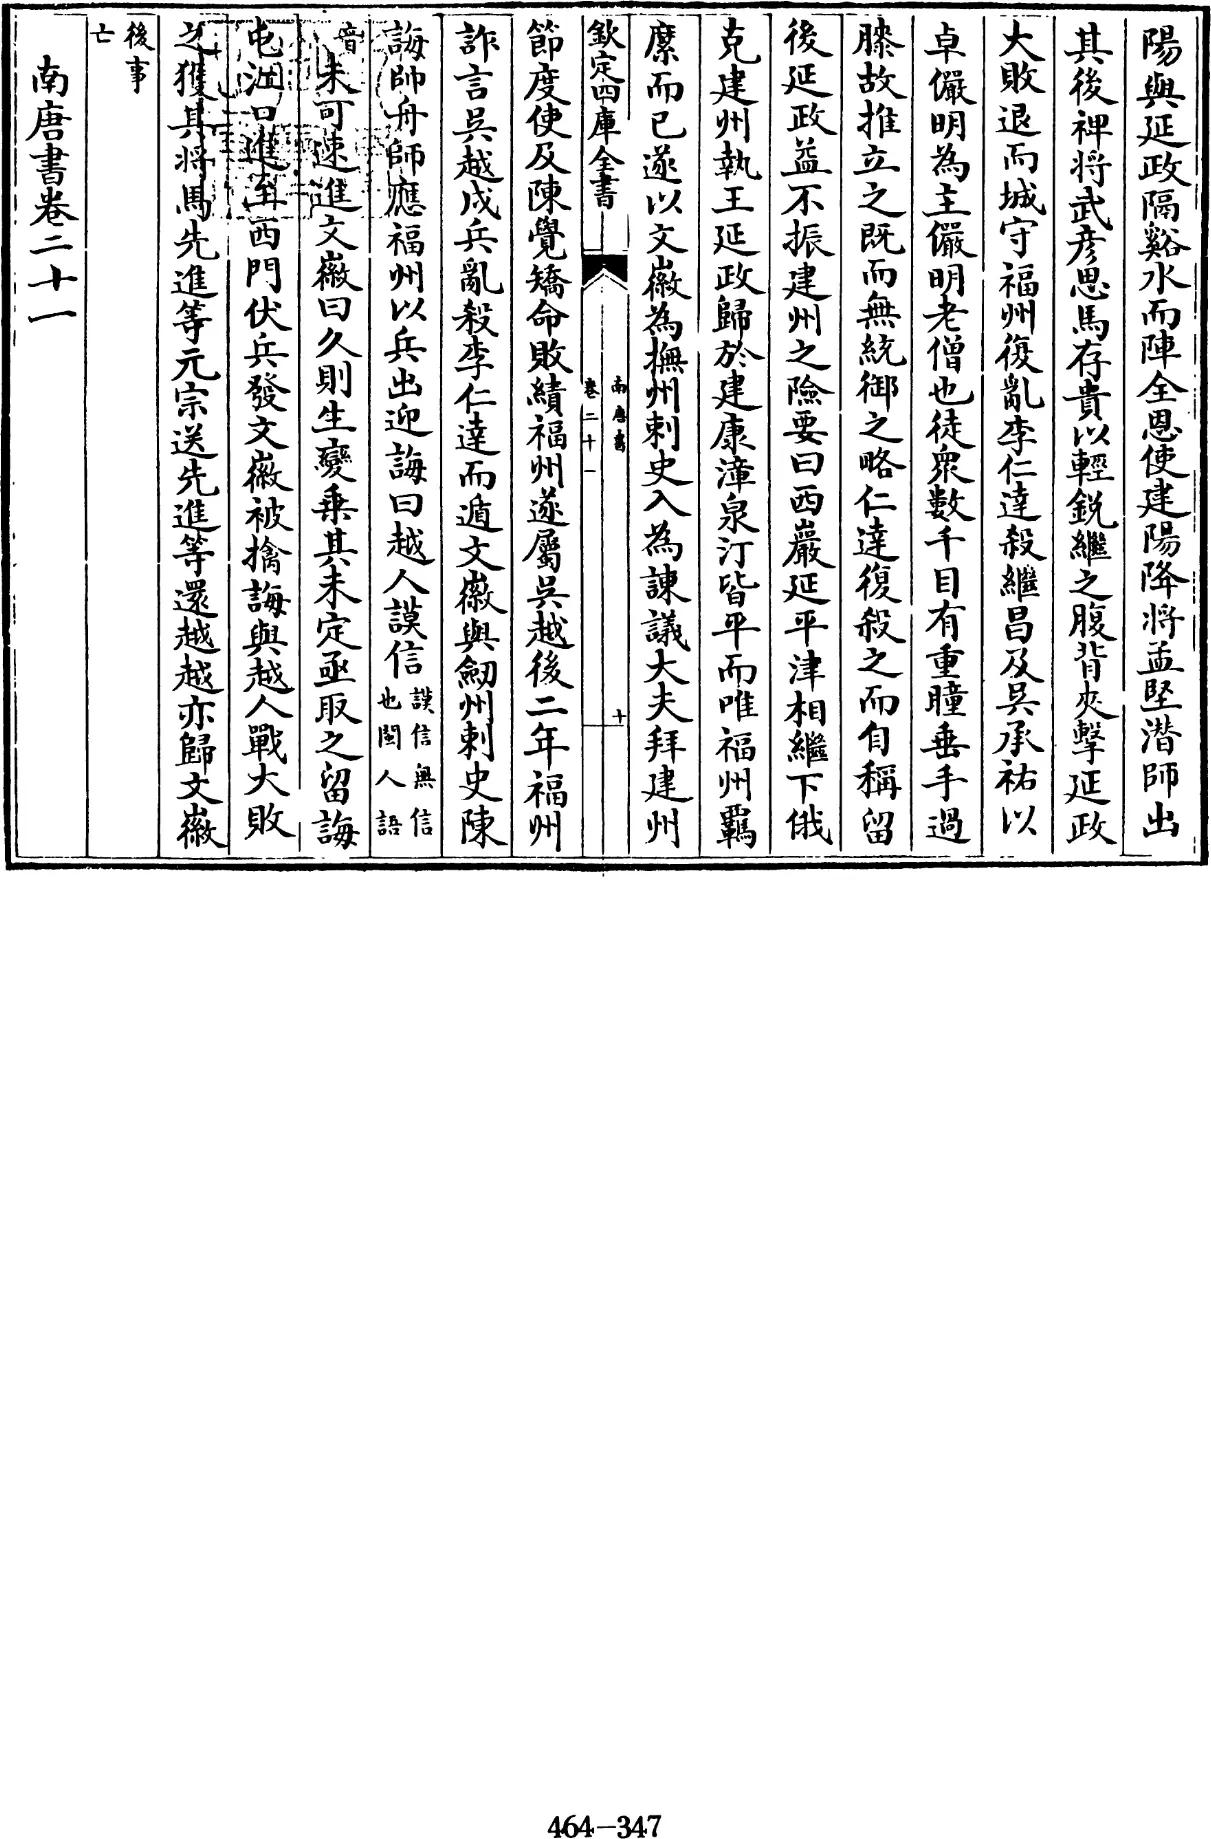 陽與延政隔谿水而陣全恩使建陽降將孟堅潛師出
其後禆將武彦思馬存貴以輕鋭繼之腹背夾擊延政
大敗退而城守福州復亂李仁達殺繼昌及吳承祐以
卓儼明為主儼明老僧也徒衆數千目有重瞳垂手過
膝故推立之既而無統御之略仁達復殺之而自稱留
後延政益不振建州之險要曰西巖延平津相繼下俄
克建州執王延政歸於建康漳泉汀皆平而唯福州羈
縻而已遂以文徽為撫州刺史入為諫議大夫拜建州
欽定四庫全書
南唐書
卷二十一
十
節度使及陳覺矯命敗績福州遂屬吳越後二年福州
詐言吳越戍兵亂殺李仁達而遁文徽與劒州刺史陳
誨帥舟師應福州以兵出迎誨曰越人謨信謨信無信也閩人語
音未可速進文徽曰久則生變乗其未定亟取之留誨
屯江口進至西門伏兵發文徽被擒誨與越人戰大敗
之獲其將馬先進等元宗送先進等還越越亦歸文徽
後事亡
南唐書卷二十一
464-347